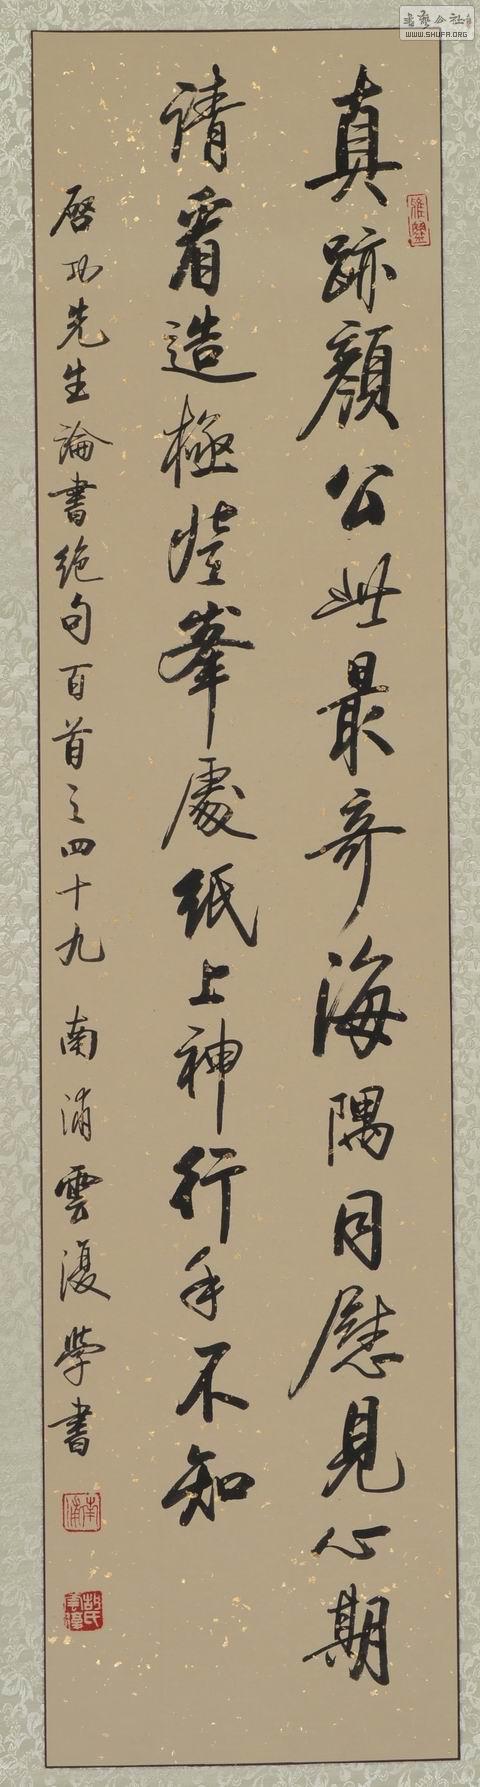 真跡顏公此最奇海隅同慰見心期
請看造極登峯處紙上神行手不知
啓功先生論書絶句百首之四十九 南浦雲復學書
南浦
書法公社
WWW.SHUFA.ORG